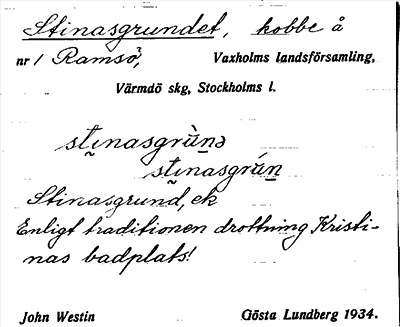 Stinasgrundet, kobbe å
nr 1 Ramsö, Vaxholms landsförsamling,
Värmdö skg, Stockholms l.
sti̱nasgrùṉə
sti̱nasgrúṉ
Stinasgrund, ek
Enligt traditionen drottning Kristi-
nas badplats!
John Westin Gösta Lundberg 1934.